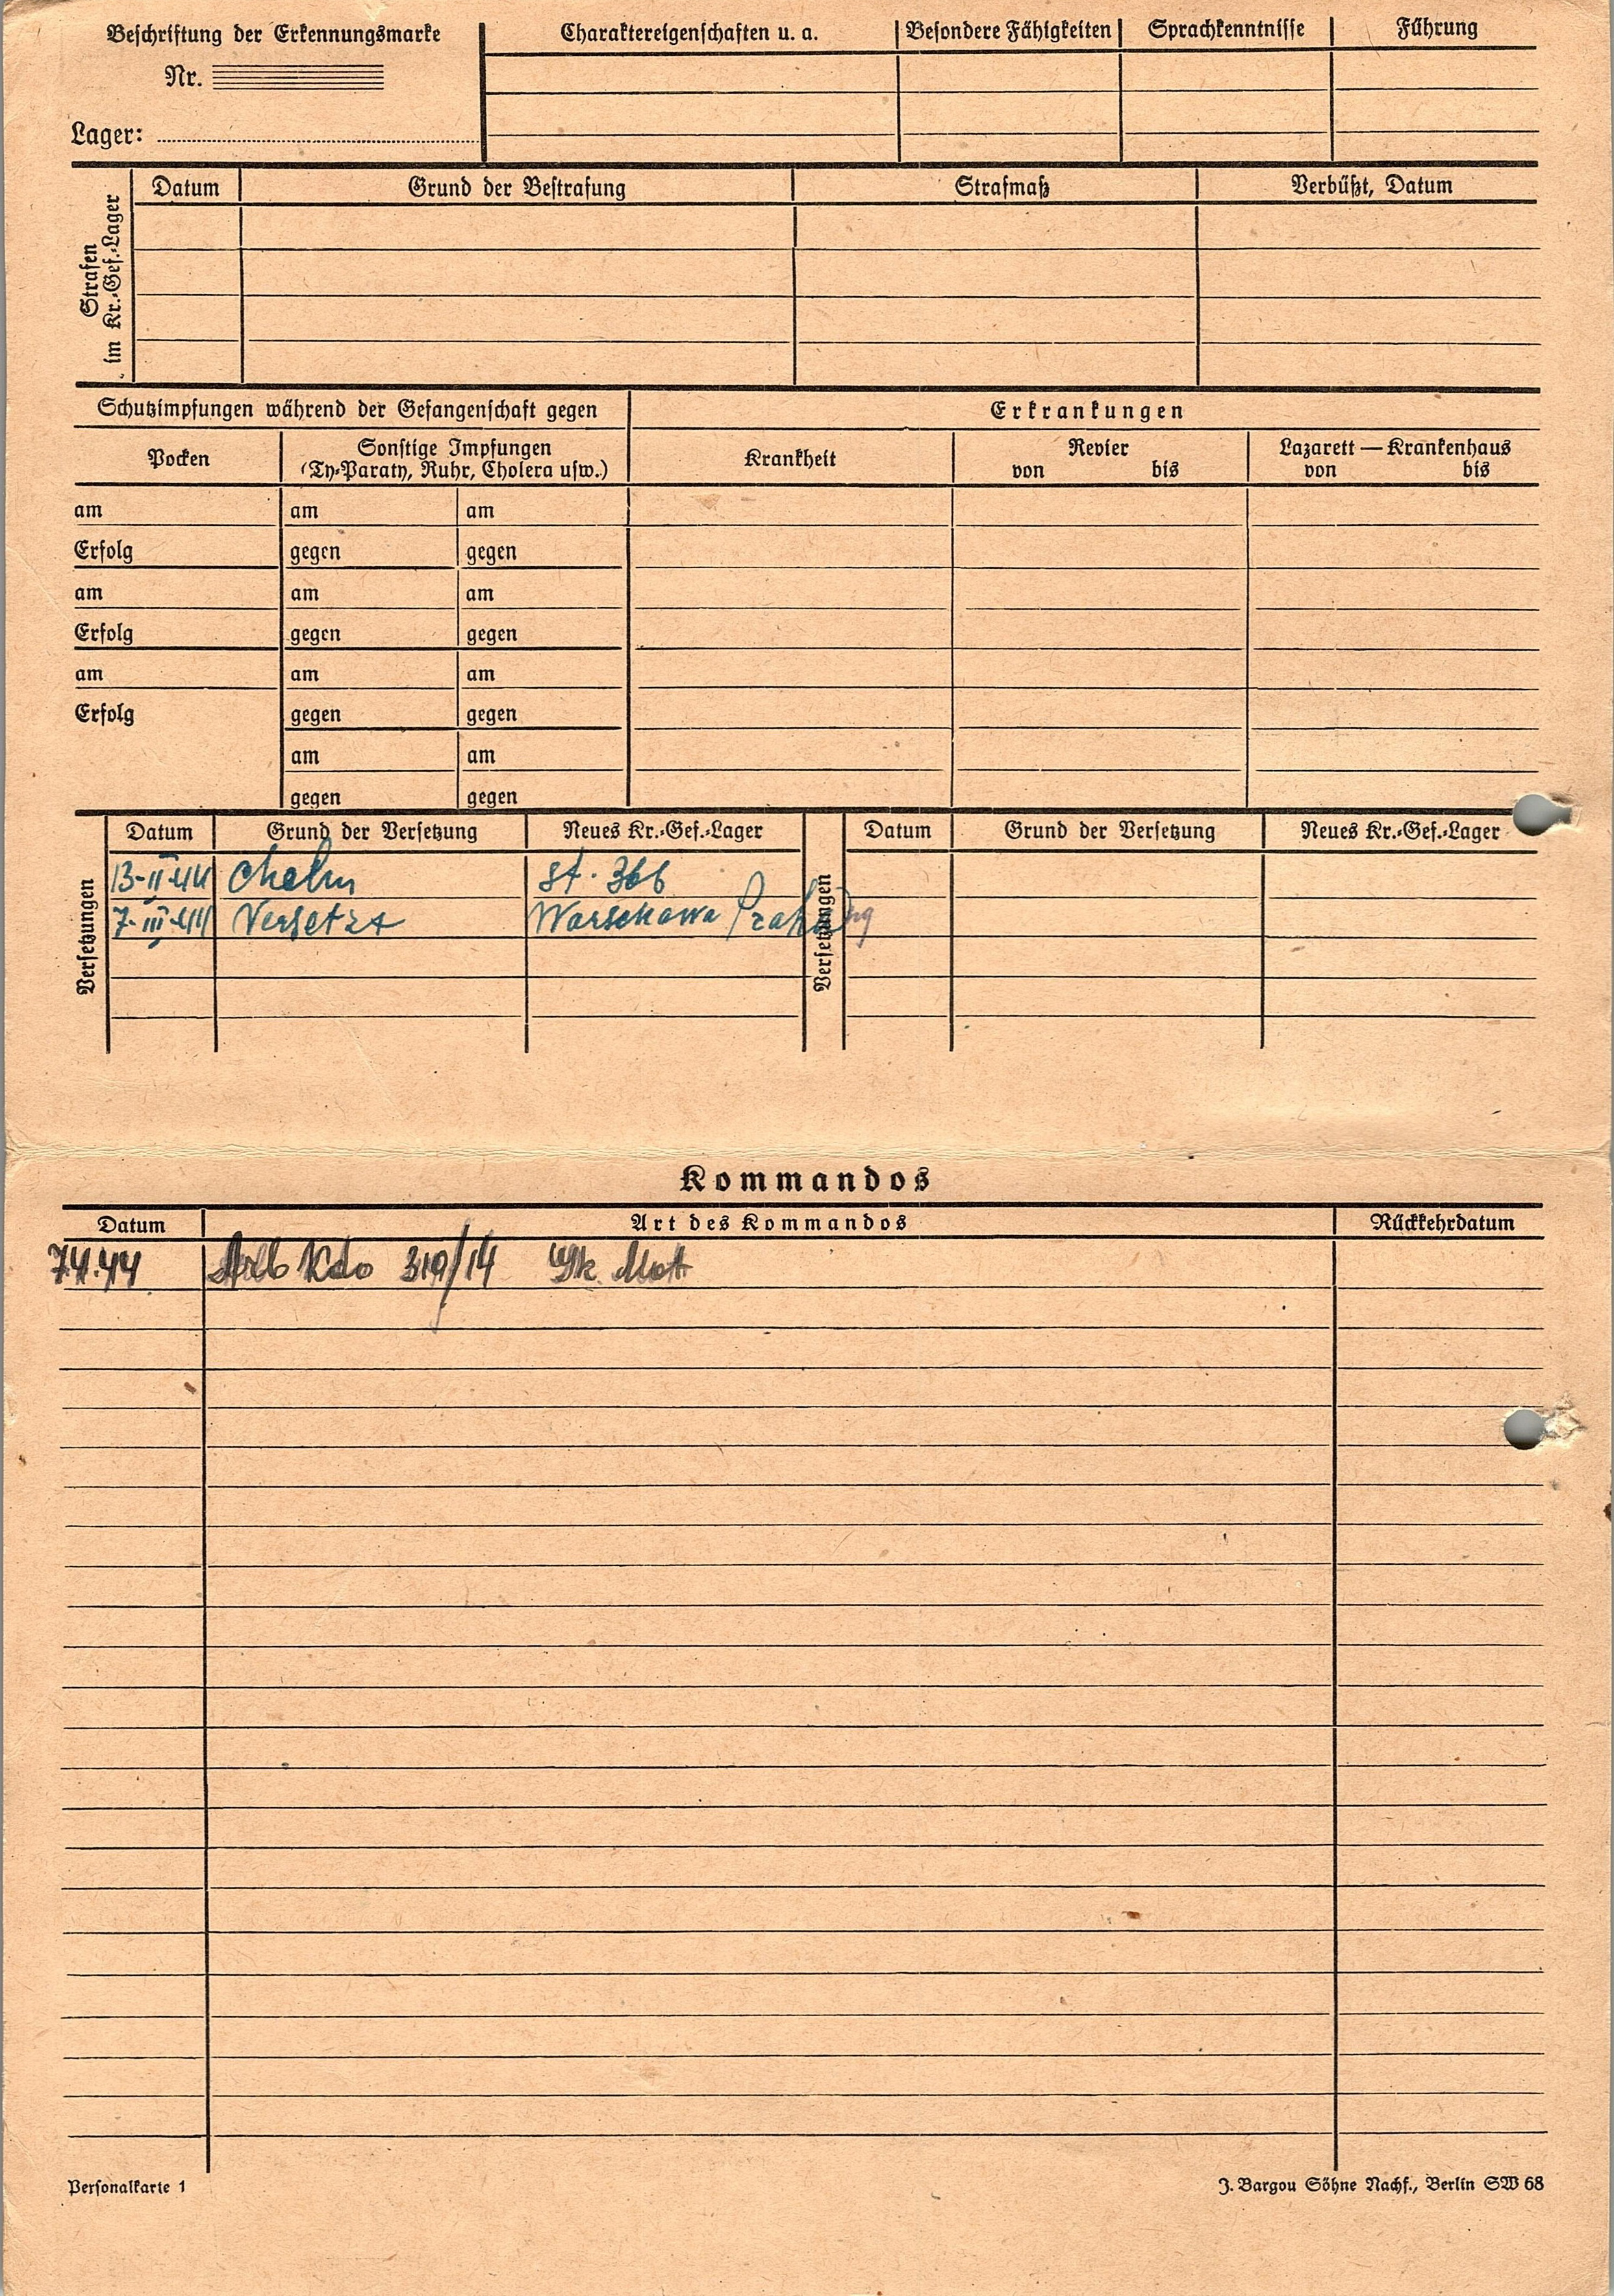 Beschriftung der Erkennungsmarke
Nr.
Lager:
Charaktereigenschaften u. a. Besondere Fähigkeiten Sprachkenntnisse Führung
Strafen
im Kr.-Gef.-Lager
Datum Grund der Bestrafung Strafmaß Verbüßt, Datum
Schutzimpfungen während der Gefangenschaft gegen
Erkrankungen
Pocken
Sonstige Impfungen
(Ty-Paraty, Ruhr, Cholera usw.)
Krankheit
Revier
von bis
Lazarett — Krankenhaus
von bis
am am am
Erfolg gegen gegen
am am am
Erfolg gegen gegen
am am am
Erfolg gegen gegen
am am
gegen gegen
Versetzungen
Datum Grund der Versetzung Neues Kr.-Gef.-Lager
13-II-44 Cholm St. 366
7-III-44 Versetzt Warschawa
Versetzungen
Datum Grund der Versetzung Neues Kr.-Gef.-Lager
Kommandos
Datum Art des Kommandos Rückkehrdatum
7.4.44 Arb Kdo 319/14
Personalkarte 1
J. Bargou Söhne Nachf., Berlin SW 68